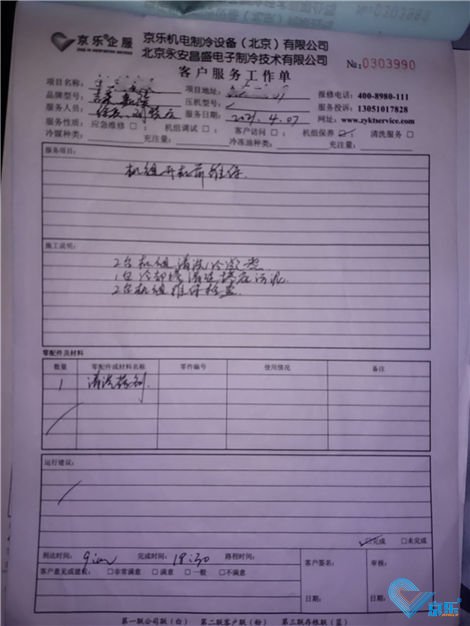 京乐企服
京乐机电制冷设备（北京）有限公司
北京永安昌盛电子制冷技术有限公司
客户服务工作单
№:0303990
项目名称： 项目地址： 报修电话：400-8980-111
品牌型号： 压机型号： 服务投诉：13051017828
服务人员： 服务日期：2021.4.07 网址：www.zyktservice.com
服务性质：应急维修□； 机组调试□； 客户访问□； 机组保养☑； 清洗服务□
冷媒种类： 充注量： 冷冻油种类： 充注量：
服务项目：
机组开机前维保
施工说明：
2台机组清洗冷凝器
1台冷却塔清洗塔底污泥
2台机组维保检查
零配件及材料
数量 零配件或材料名称 零件编号 使用情况 备注
1 清洗药剂
运行建议：
☑完成 □未完成
到达时间： 完成时间： 路程时间：
客户意见或建议： □非常满意 □满意 □一般 □不满意
客户签名： 审核：
日期： 日期：
第一联公司联（白） 第二联客户联（粉） 第三联存根联（蓝）
京乐